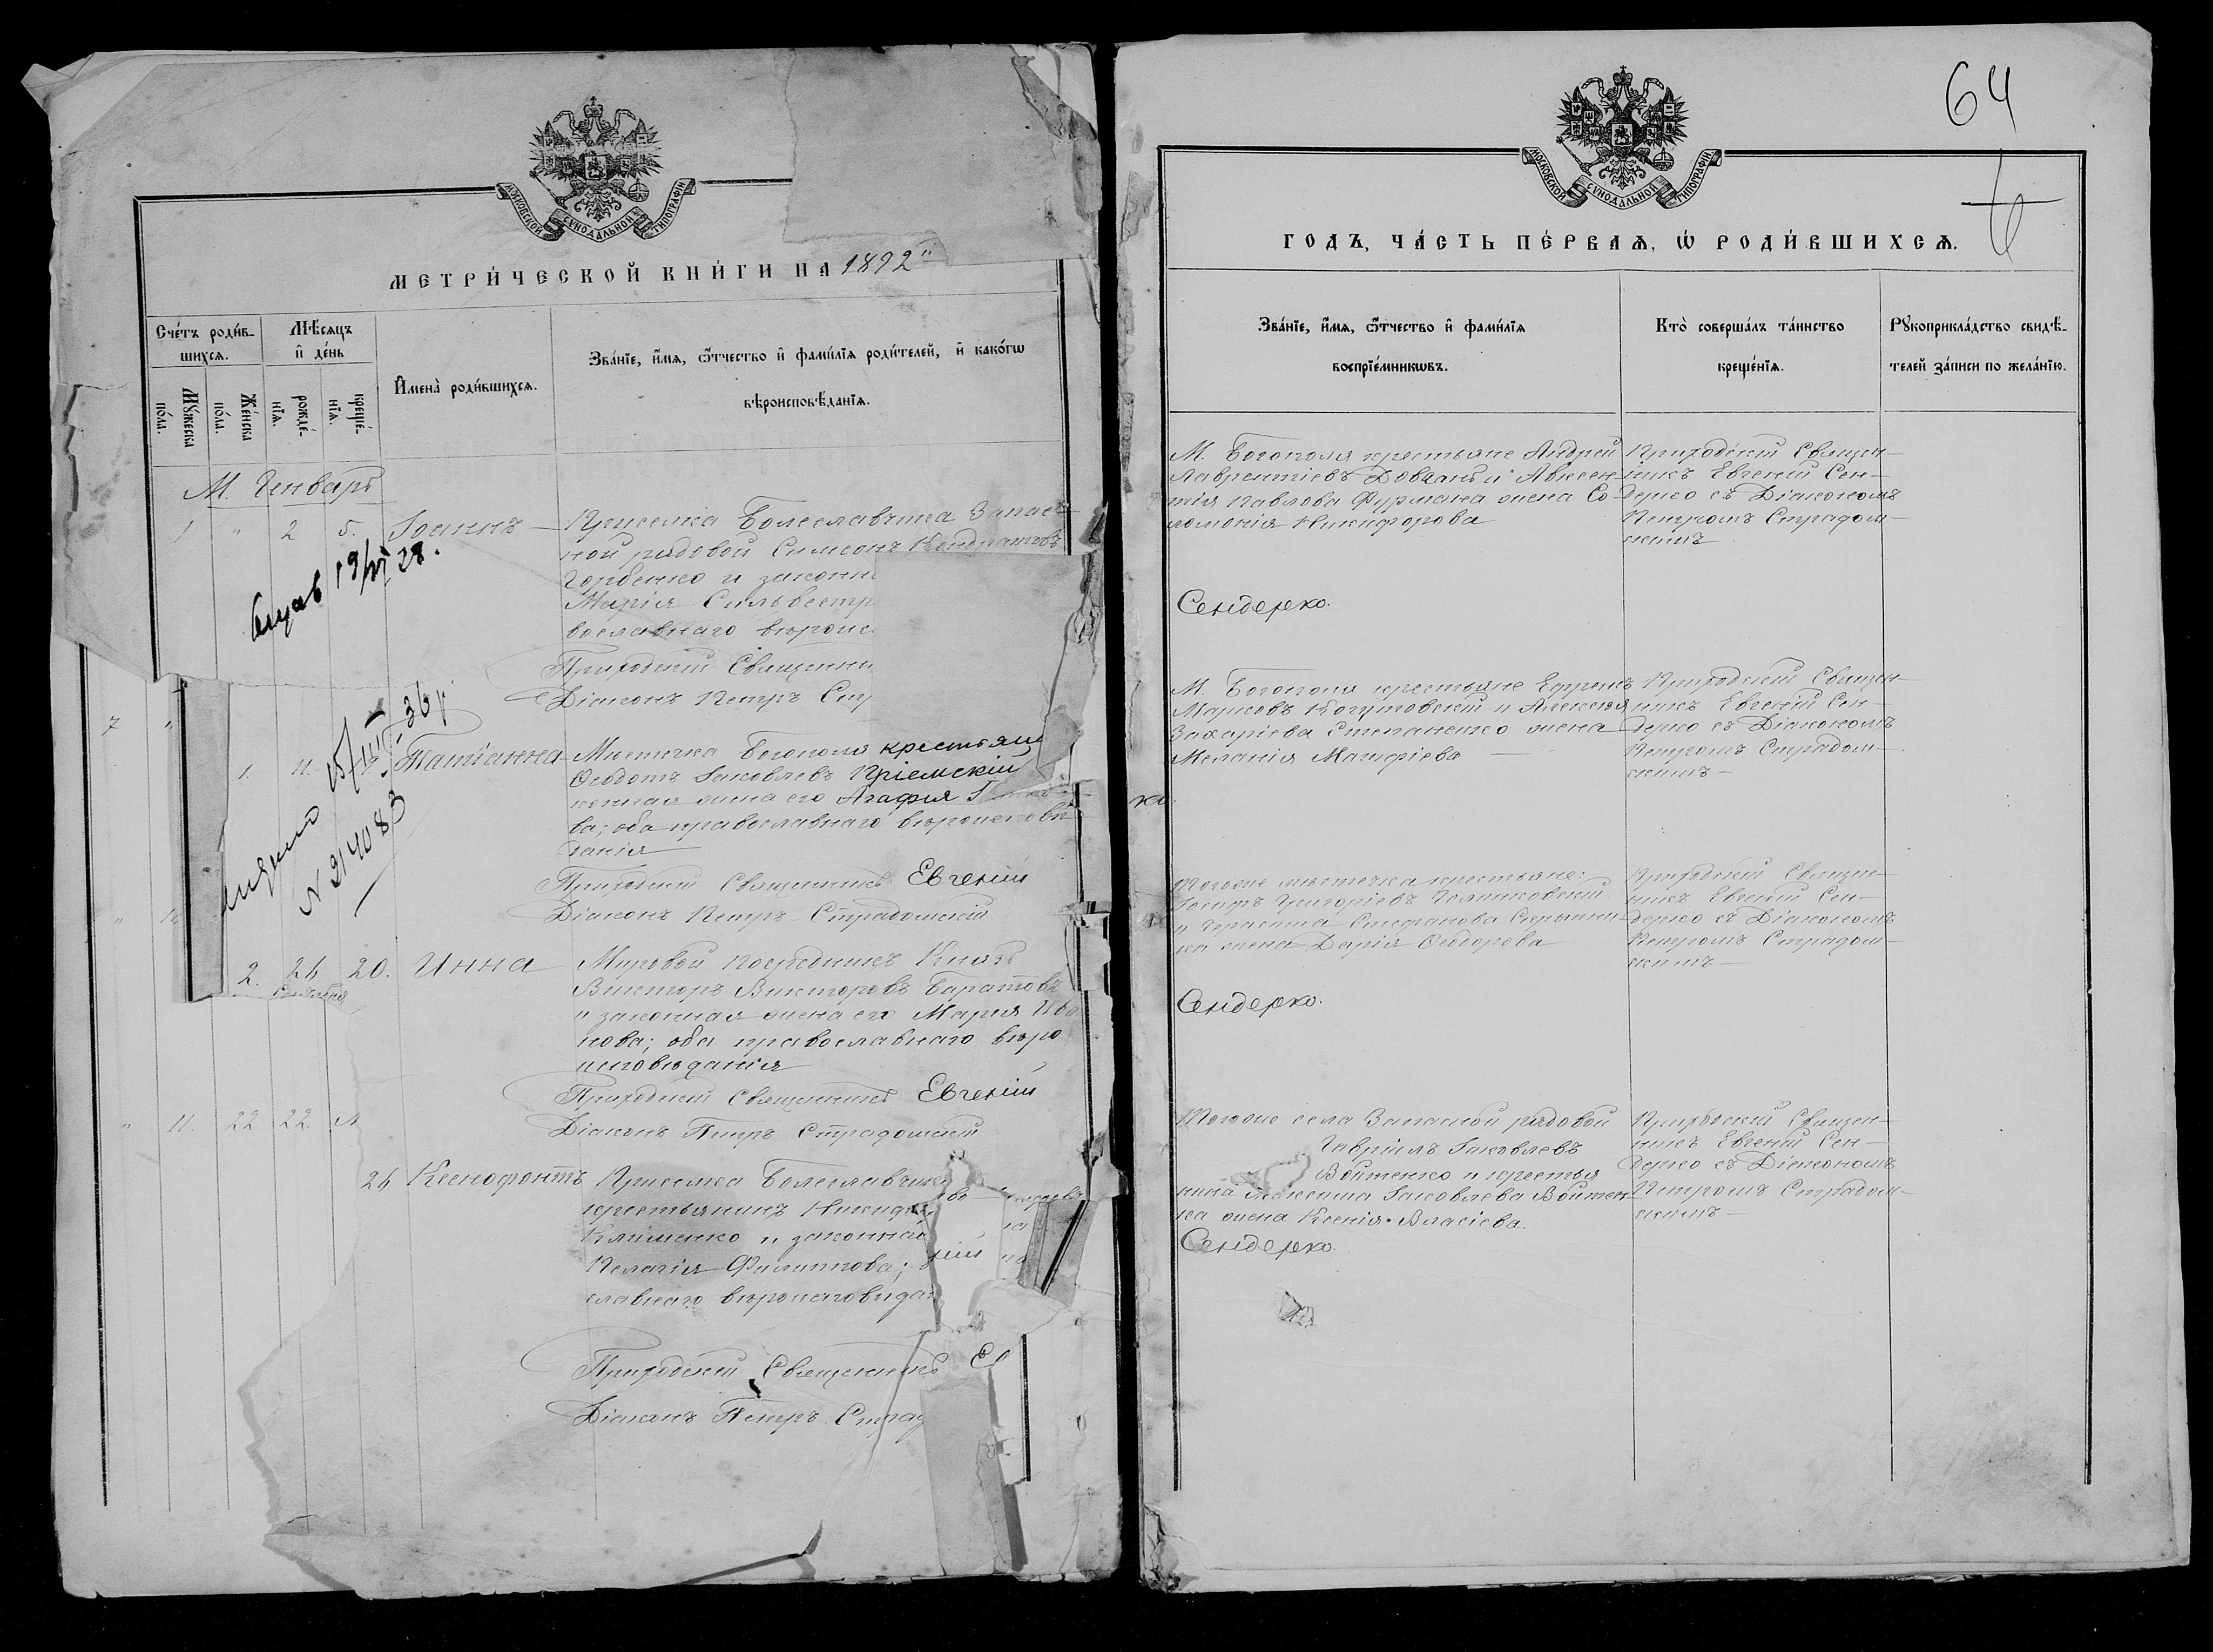 МОСКОВСКОЙ СѴНОДАЛЬНОЙ ТИПОГРАФІИ
МЕТРИ́ЧЕСКОЙ КНИ́ГИ НА 1892
Сче́тъ роди́в-
шихсѧ.
Мѣ́сѧцъ
и҆ де́нь
Мꙋ́жеска
по́ла.
Же́нска
по́ла.
рожде́-
нїѧ.
креще́-
нїѧ.
И҆мена̀ роди́вшихсѧ.
Зва́нїе, и҆́мѧ, ѻ҆́тчество и҆ фами́лїѧ роди́телей, и҆ како́гѡ
вѣроисповѣ́данїѧ.
М. Генварь
1 " 2 5. Іоаннъ
Приселка Болеславчика Запас-
ной рядовой Симеонъ Кондратовъ
Горбенко и законн
Марія Сильвестр
вославнаго вѣроис
Приходскій Священни
Діаконъ Петръ Ст
28.
7 "
1. 11. Татіанна
Мѣстечка Богополя крестьян
Ѳеодотъ Іаковлевъ Пріемскій
конная жена его Агафія
ва; оба православнаго вѣроисповѣ
данія
N 214083
Приходскій Священникъ Евгеній
Діаконъ Петръ Страдомскій
2. 26 20. Инна
Мировой Посредникъ Князь
Викторъ Викторовъ Баратовъ
и законная жена его Марія Ива
нова; оба православнаго вѣро
исповѣданія
Приходскій Священникъ Евгеній
Діаконъ Петръ Страдомскій
" 11. 22 22
26 Ксенофонтъ
Приселка Болеславчик
крестьянинъ Никиф
Клименко и законная
Пелагія Филиппова;
славнаго вѣроисповѣдан
Приходскій Священникъ Ев
Діаконъ Петръ Страд
64
МОСКОВСКОЙ СѴНОДАЛЬНОЙ ТИПОГРАФІИ
ГОДЪ, ЧА́СТЬ ПЕ́РВАѦ, Ѡ҆ РОДИ́ВШИХСѦ.
Зва́нїе, и҆́мѧ, ѻ҆́тчество и҆ фами́лїѧ
воспрїе́мникѡвъ.
Кто̀ соверша́лъ та́инство
креще́нїѧ.
Рꙋкоприкла́дство свидѣ́-
телей за́писи по жела́нїю.
М. Богополя крестьяне Андрей
Лаврентіевъ Довгань и Авксен-
тія Павлова Фурмана жена Со-
ломонія Никифорова
Приходскій Священ-
никъ Евгеній Сен-
дерко съ Діакономъ
Петромъ Страдом-
скимъ
Сендерко.
М. Богополя крестьяне Ефремъ
Марковъ Когутовскій и Алексѣя
Захаріева Степаненко жена
Меланія Матфіева
Приходскій Священ-
никъ Евгеній Сен-
дерко съ Діакономъ
Петромъ Страдом-
скимъ
ка.
Тогоже мѣстечка крестьяне:
Іосифъ Григоріевъ
и Герасима Стефанова
ка жена Дарія Ѳеодорова
Приходскій Священ-
никъ Евгеній Сен-
дерко съ Діакономъ
Петромъ Страдом-
скимъ
Сендерко.
Тогоже села Запасной рядовой
Гавріилъ Іаковлевъ
Войтенко и крестья
нина Максима Іаковлева Войтен-
ка жена Ксенія Власіева.
Приходскій Священ-
никъ Евгеній Сен-
дерко съ Діакономъ
Петромъ Страдом-
скимъ
Сендерко.